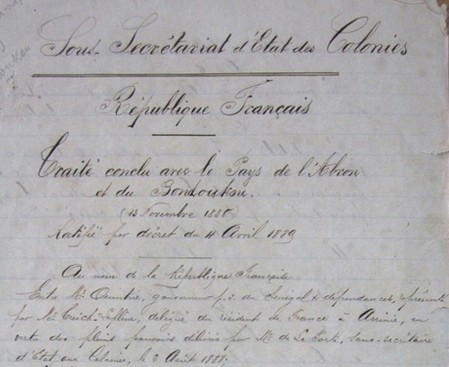 Sous-Secrétariat d'Etat des Colonies
République Français
Traité conclu avec le Pays de l'Abron
et du Bondoukou.
(13 Novembre 1888)
Ratifié par décret du 11 Avril 1889
Au nom de la République Française
Entre Mr gouverneur p.i. du Sénégal & dépendances, représenté
par Mr Treich-Laplène, délégué du résident de France à Assinie, en
vertu des pleins pouvoirs délivrés par Mr de La Porte, sous-secrétaire
d'Etat aux Colonies, le 2 Août 1888;